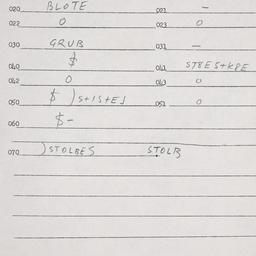 020 BLOTE 021 -
022 0 023 0
030 GRUB 031 -
040 $ 041 ST8ES+KPE
042 0 043 0
050 $ ) S+IS+EJ 051 0
060 $-
070 )STOLBES STOLB